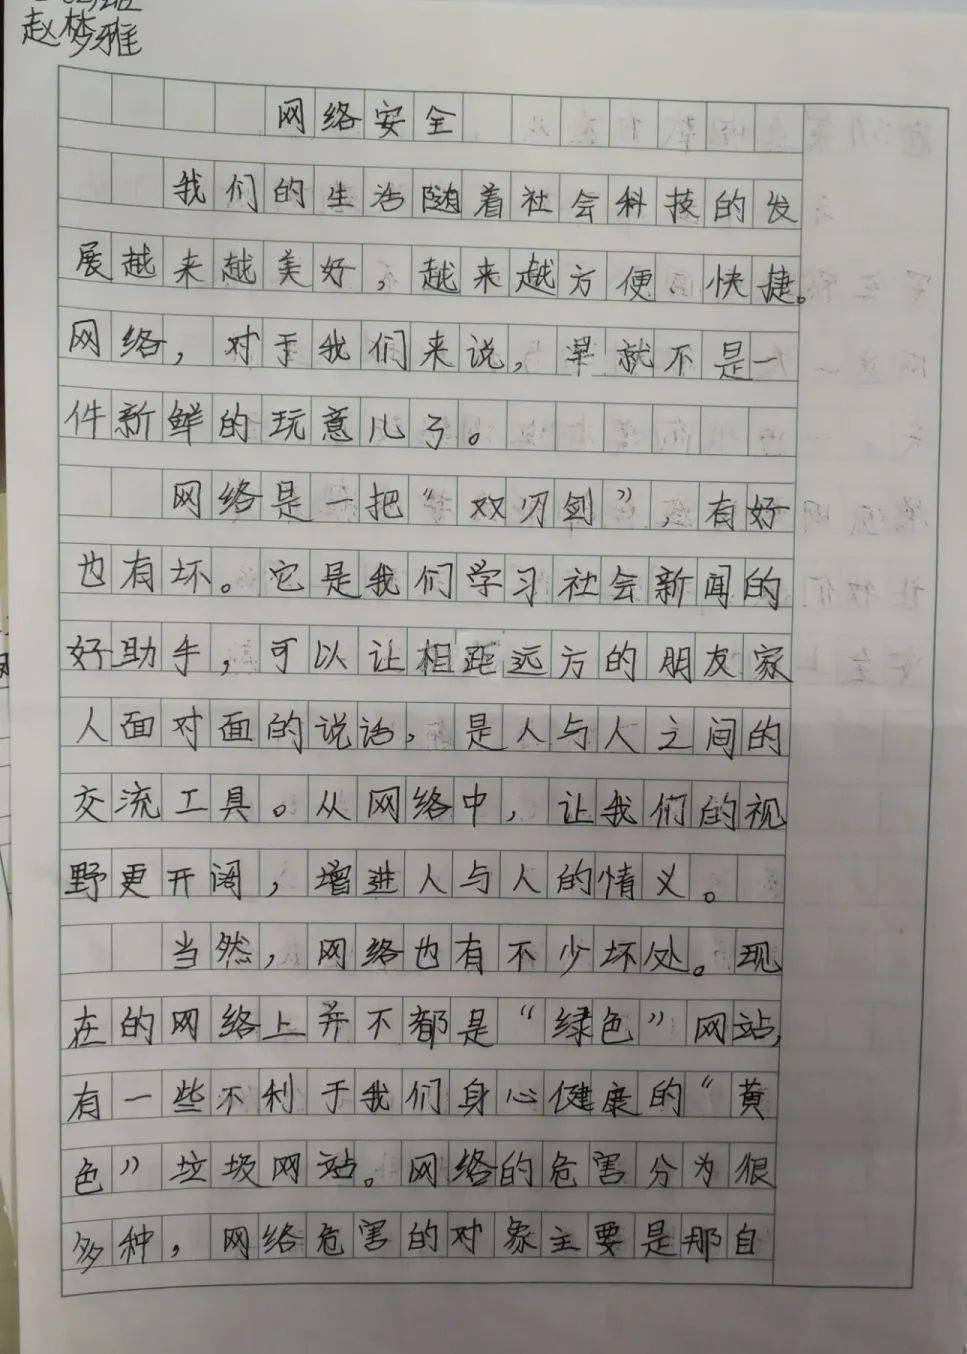 班
赵梦雅
网络安全
我们的生活随着社会科技的发
展越来越美好，越来越方便 快捷。
网络，对于我们来说，早就不是一
件新鲜的玩意儿了。
网络是一把“双刃剑”，有好
也有坏。它是我们学习社会新闻的
好助手，可以让相距远方的朋友家
人面对面的说话，是人与人之间的
交流工具。从网络中，让我们的视
野更开阔，增进人与人的情义。
当然，网络也有不少坏处。现
在的网络上并不都是“绿色”网站，
有一些不利于我们身心健康的“黄
色”垃圾网站。网络的危害分为很
多种，网络危害的对象主要是那自